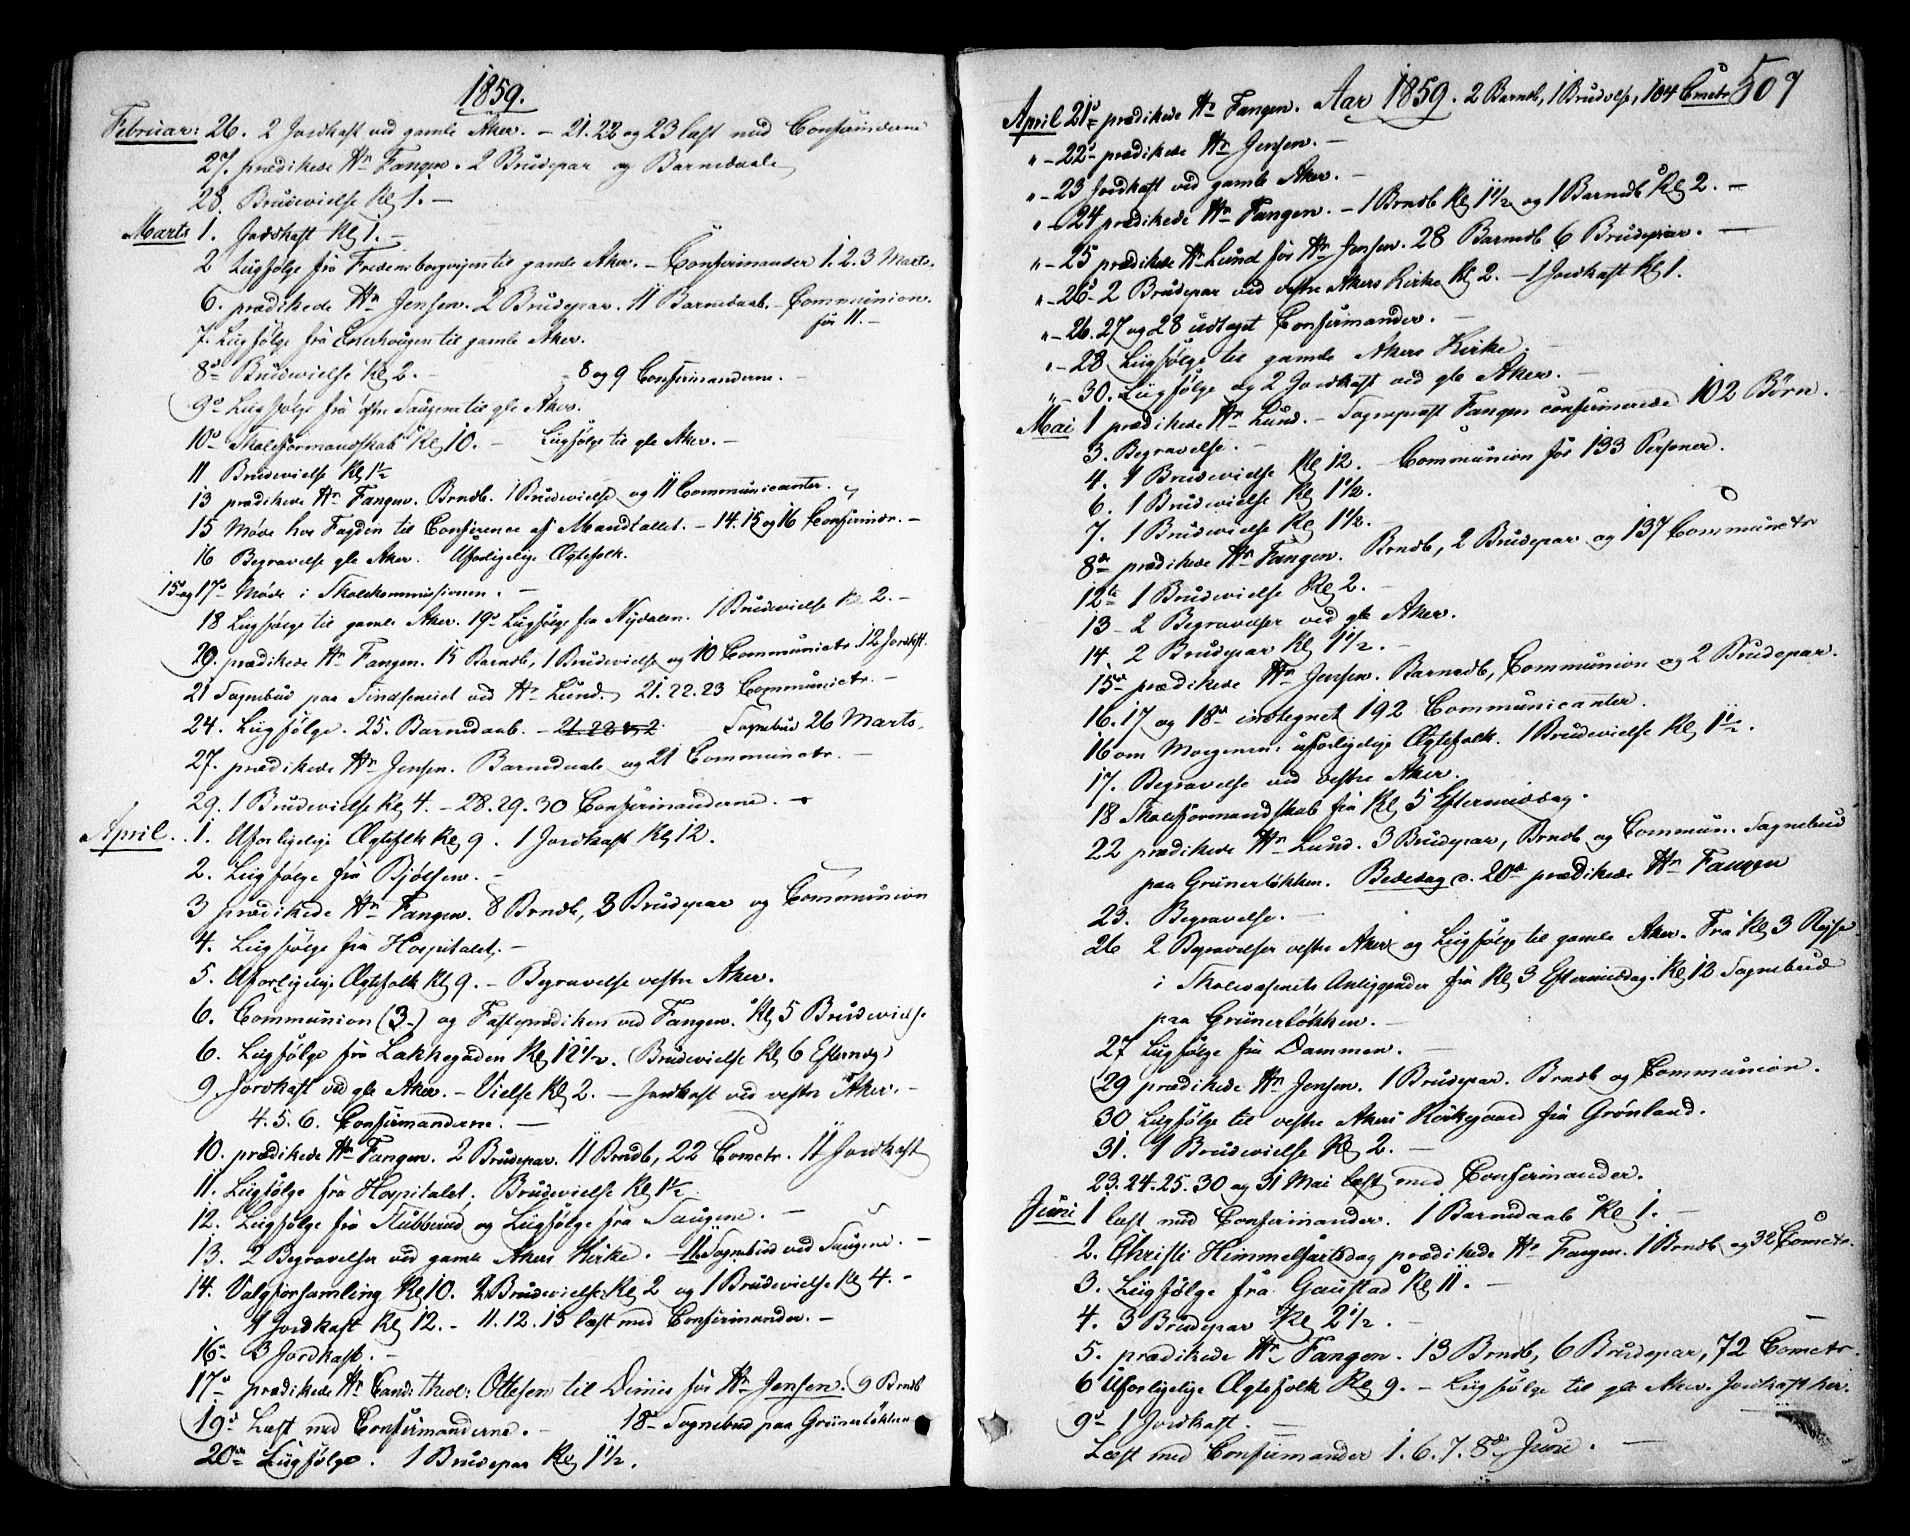 1859.
Februar: 26. 2 Jordkast ved gamle Aker. – 21. 22 og 23 læst med Confirmderne
27. prædikede Hr Fangen. 2 Brudepar og Barnedaab
28. Brudevielse Kl 1. –
Marts 1. Jordkast Kl 1. –
2 Liigfølge fra Fredensborgveien til gamle Aker. – Confirmander 1. 2. 3 Marts.
6. prædikede Hr Jensen. 2 Brudepar. 11 Barnedaab. – Communion
for 11. –
7. Liigfølge fra Enerhougen til gamle Aker.
8de Brudevielse Kl 2. – 8 og 9 Confirmanderne. –
9de Liigfølge fra Saugene til gle Aker.
10de Skoleformandskab Kl 10. – Liigfølge til gle Aker. –
11 Brudevielse Kl 1½
13 prædikede Hr Fangen. Brndb. 1 Brudevielse og 11 Communicanter.
15 Møde hos Fogden til Conference af Mandtallet. – 14. 15 og 16 Confirmdr. –
16 Begravelse gle Aker. Uforligelige Ægtefolk.
15 og 17de Møde i Skolekommissionen. –
18 Liigfølge til gamle Aker. 19de Liigfølge fra Nydalen. 1 Brudevielse Kl 2. –
20. prædikede Hr Fangen. 15 Barndb, 1 Brudevielse og 10 Communictr. 12 Jordkst.
21 Sognebud paa Tindseneiet ved Hr Lund. 21. 22. 23 Communictr. –
24. Liigfølge. 25. Barnedaab. – Sognebud 26 Marts.
27. prædikede Hr Jensen. Barnedaab og 21 Communictr. –
29. 1 Brudevielse Kl 4. – 28. 29. 30 Confirmanderne. –
April. 1. Uforligelige Ægtefolk Kl 9. 1 Jordkast Kl 12.
2. Liigfølge fra Bjølsen. –
3 prædikede Hr Fangen. 8 Brndb, 3 Brudepar og Communion
4. Liigfølge fra Hospitalet. –
5. Uforligelige Ægtefolk Kl 9. – Begravelse vestre Aker.
6. Communion (3.) og Fasteprædiken ved Fangen. Kl 5 Brudevielse
6. Liigfølge fra Lakkegaden Kl 12½. (Brudevielse Kl 6 Efterm)
9. Jordkast ved gle Aker. – Vielse Kl 2. – Jordkast ved vestre Aker. –
4. 5. 6. Confirmanderne. –
10. prædikede Hr Fangen. 2 Brudepar. 11 Brndb, 22 Cometr. 11 Jordkast
11. Liigfølge fra Hospitalet. Brudevielse Kl 1½
12. Liigfølge fra Stubberud og Liigfølge fra Saugene. –
13. 2 Begravelser ved gamle Akers Kirke. – 11. Sognebud ved Saugene. –
14. Valgforsamling Kl 10. 2 Brudevielser Kl 2 og 1 Brudevielse Kl 4. –
1 Jordkast Kl 12. – 11. 12. 13 læst med Confirmander. –
16de 3 Jordkast. –
17de prædikede Hr Candi theol: Ottesen til Dimis for Hr Jensen. 9 Brndb
19de Læst med Confirmanderne. – 18de Sognebud paa Grünerløkken
20de Liigfølge. 1 Brudepar Kl 1½.
April 21de prædikede Hr Fangen. Aar 1859. 2 Barndb, 1 Brudvlse, 104 Cmctr 507
" – 22de prædikede Hr Jensen. –
" – 23 Jordkast ved gamle Aker. –
" – 24 prædikede Hr Fangen. – 1 Brndb Kl 1½ og 1 Barndb Kl 2. –
" – 25 prædikede Hr Lund for Hr Jensen. 28 Barndb 6 Brudepar. –
" – 26de 2 Brudepar ved vestre Akers Kirke Kl 2. – 1 Jordkast Kl 1.
" – 26. 27 og 28 udtaget Confirmander. –
" – 28 Liigfølge til gamle Akers Kirke. –
" – 30. Liigfølge og 2 Jordkast ved gle Aker. –
Mai 1 prædikede Hr Lund. – Sogneprest Fangen confirmerede 102 Børn.
3. Begravelse. –
4. 1 Brudevielse Kl 12. – Communion for 133 Personer.
6. 1 Brudevielse Kl 1½.
7. 1 Brudevielse Kl 1½. –
8de prædikede Hr Fangen. Brndb, 2 Brudepar og 137 Communctr
12te 1 Brudevielse Kl 2. –
13 – 2 Begravelser ved gle Aker.
14. 2 Brudepar Kl 1½. –
15de prædikede Hr Jensen. Barndb, Communion og 2 Brudepar.
16. 17 og 18de indtegnet 192 Communicanter.
16 om Morgenen: uforligelige Ægtefolk. 1 Brudevielse Kl 1½.
17. Begravelse ved vestre Aker.
18 Skoleformandskab fra Kl 5 Eftermiddag.
22 prædikede Hr Lund. 3 Brudepar, Brndb og Commun. Sognebud
paa Grünerløkken. Bededag d. 20de prædikede Hr Fangen
23. Begravelse. –
26 2 Begravelser vestre Aker og Liigfølge til gamle Aker. Fra Kl 3 Rejse
i Skolevæsenets Anliggender fra Kl 3 Eftermiddag. Kl 12 Sognebud
paa Grünerløkken. –
27 Liigfølge fra Dammen. –
29 prædikede Hr Jensen. 1 Brudepar. Brndb og Communion.
30 Liigfølge til vestre Akers Kirkegaard fra Grønland.
31. 1 Brudevielse Kl 2. –
23. 24. 25. 30 og 31 Mai læst med Confirmander.
Juni 1 læst med Confirmander. 1 Barnedaab Kl 1. –
2. Christi Himmelfartsdag prædikede Hr Fangen. 1 Brndb og 32 Cometr.
3. Liigfølge fra Gaustad Kl 11. –
4. 3 Brudepar Kl 2½. –
5. prædikede Hr Fangen. 13 Brndb, 6 Brudepar, 72 Cometr.
6 Uforligelige Ægtefolk Kl 9. – Liigfølge til gle Aker. Jordkast her.
9de 1 Jordkast. –
Læst med Confirmander 1. 6. 7. 8de Juni. –